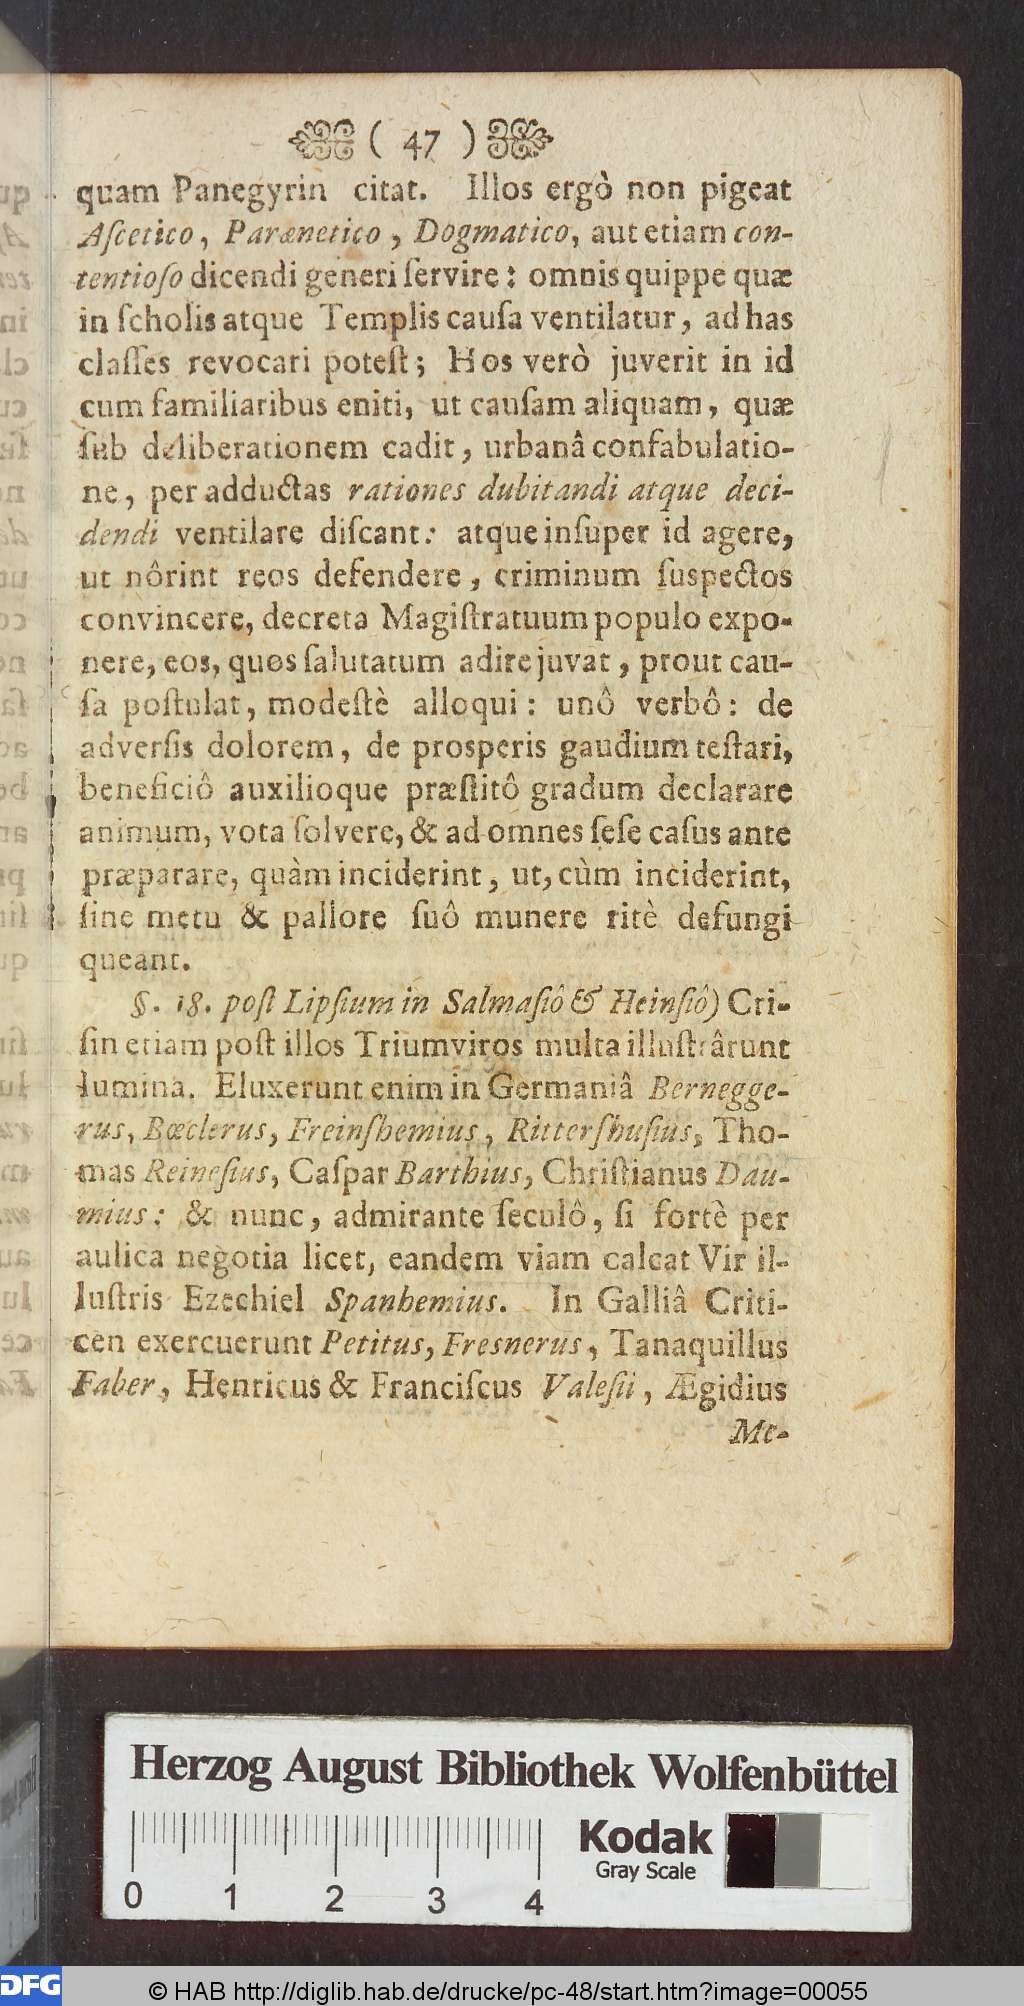 ( 47 )
quam Panegyrin citat. Illos ergò non pigeat
Aſcetico, Parænetico, Dogmatico, aut etiam con-
tentioſo dicendi generi ſervire: omnis quippe quæ
in ſcholis atque Templis cauſa ventilatur, ad has
claſſes revocari poteſt; Hos verò juverit in id
cum familiaribus eniti, ut cauſam aliquam, quæ
ſub deliberationem cadit, urbanâ confabulatio-
ne, per adductas rationes dubitandi atque deci-
dendi ventilare diſcant: atque inſuper id agere,
ut nôrint reos defendere, criminum ſuspectos
convincere, decreta Magiſtratuum populo expo-
nere, eos, quos ſalutatum adire juvat, prout cau-
ſa poſtulat, modeſtè alloqui: unô verbô: de
adverſis dolorem, de prosperis gaudium teſtari,
beneficiô auxilioque præſtitô gradum declarare
animum, vota ſolvere, & ad omnes ſeſe caſus ante
præparare, quàm inciderint, ut, cùm inciderint,
ſine metu & pallore ſuô munere ritè defungi
queant.
§. 18. poſt Lipſium in Salmaſiô & Heinſiô) Cri-
ſin etiam poſt illos Triumviros multa illuſtrârunt
lumina. Eluxerunt enim in Germaniâ Bernegge-
rus, Bœclerus, Freinſhemius, Ritterſhuſius, Tho-
mas Reineſius, Caſpar Barthius, Chriſtianus Dau-
mius: & nunc, admirante ſeculô, ſi fortè per
aulica negotia licet, eandem viam calcat Vir il-
luſtris Ezechiel Spanhemius. In Galliâ Criti-
cen exercuerunt Petitus, Fresnerus, Tanaquillus
Faber, Henricus & Franciſcus Valeſii, Ægidius
Me-
Herzog August Bibliothek Wolfenbüttel
Kodak
Gray Scale
0 1 2 3 4
DFG
© HAB http://diglib.hab.de/drucke/pc-48/start.htm?image=00055